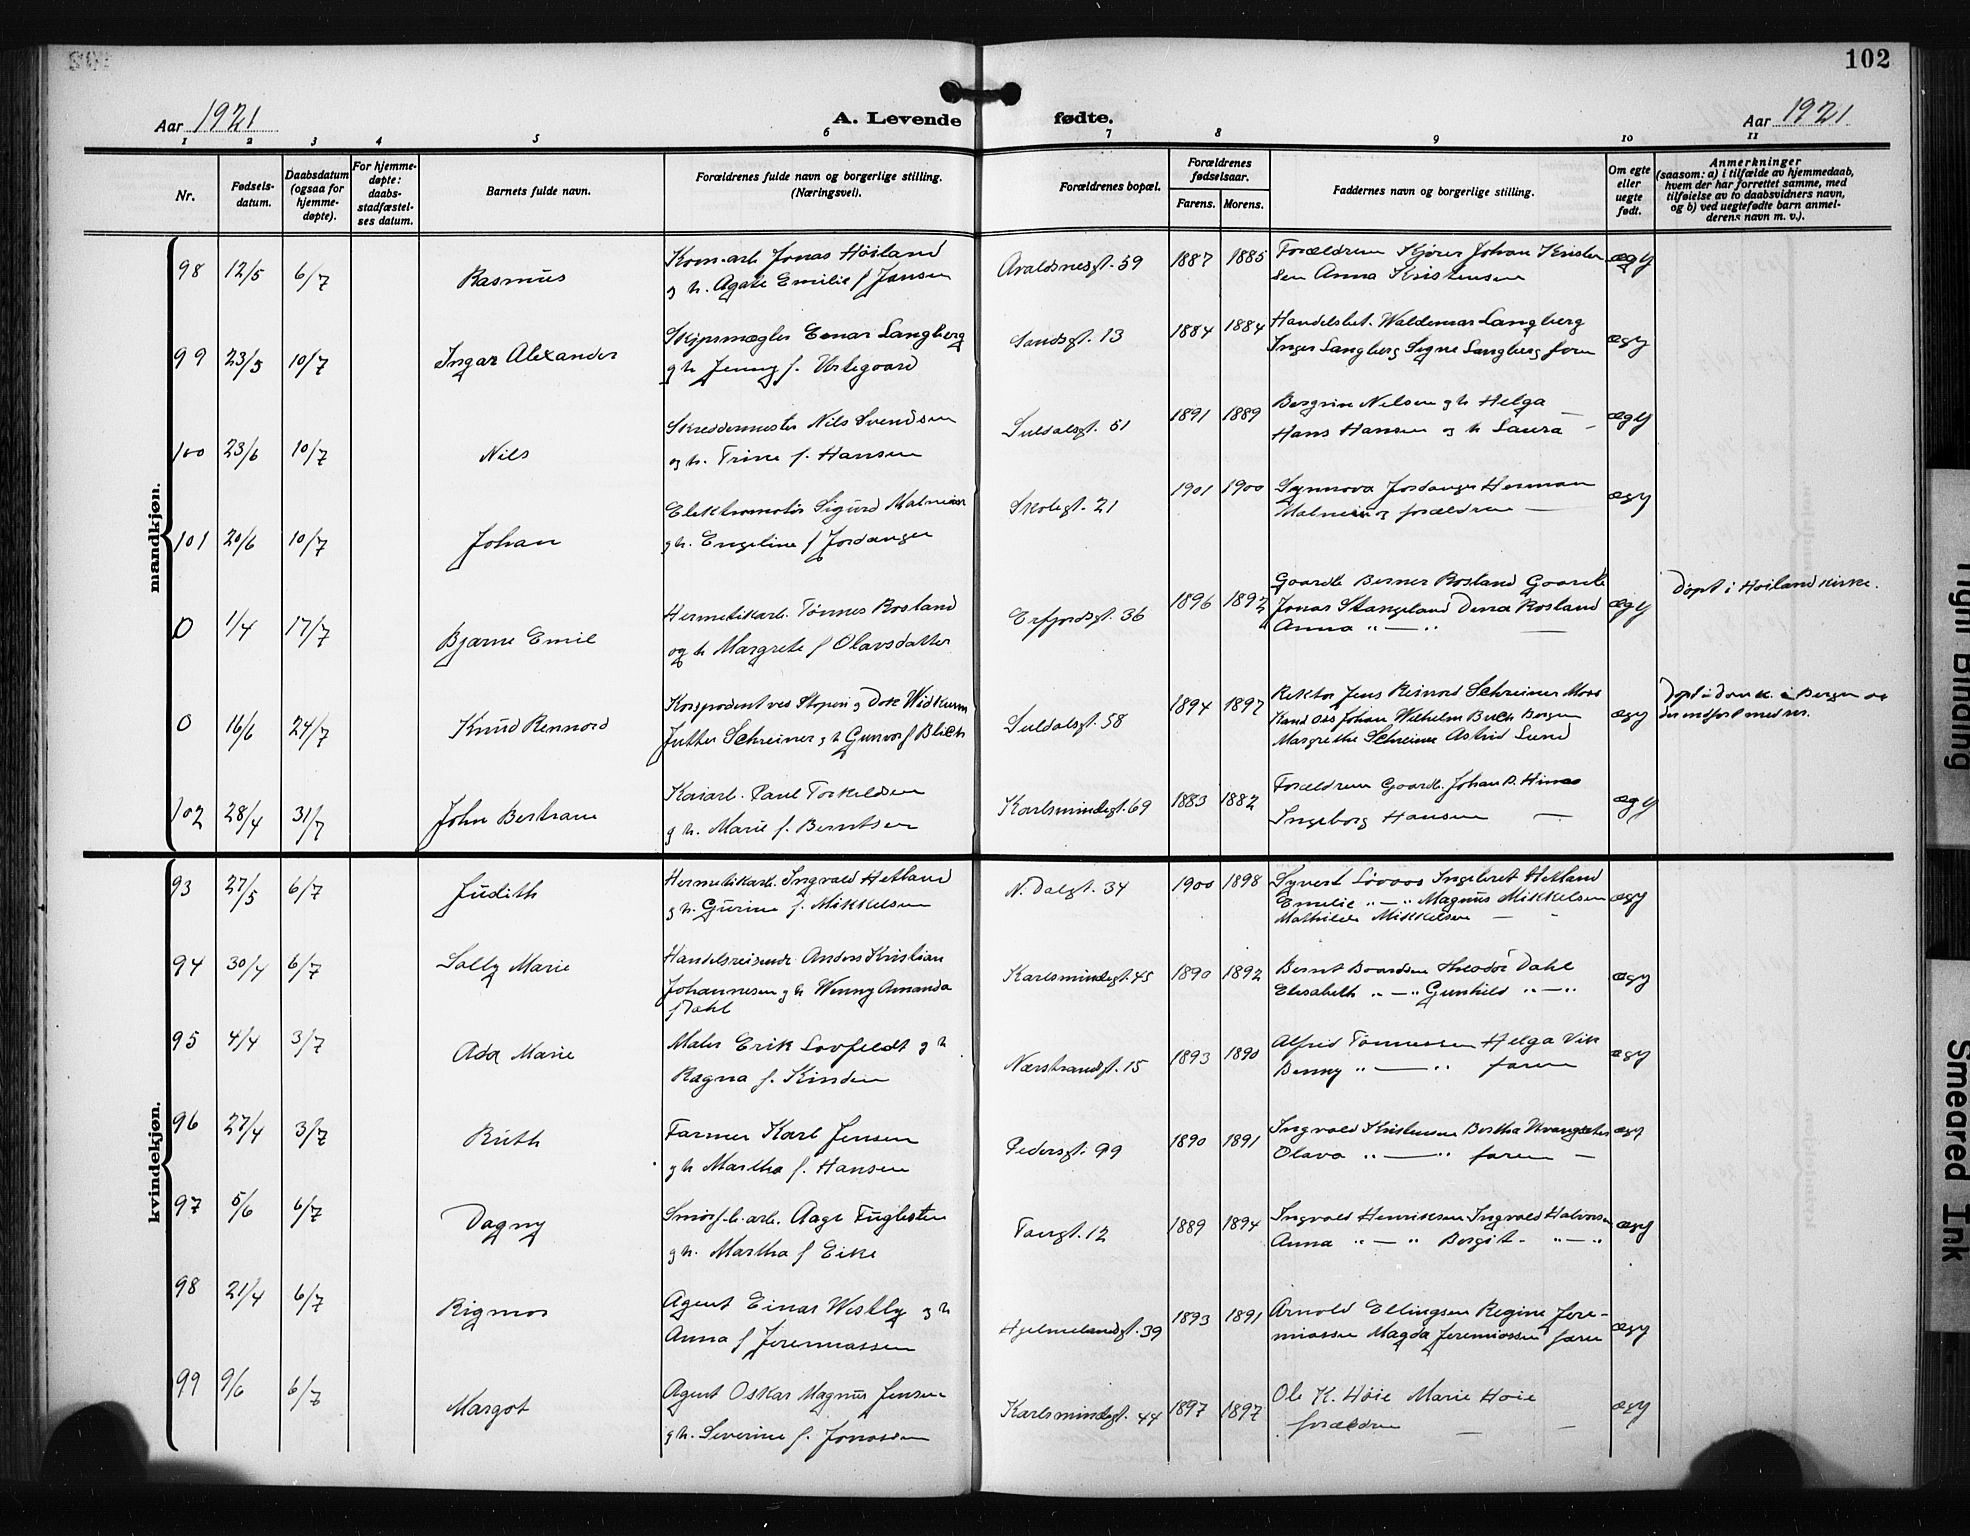 102
Aar 1921 A. Levende fødte. Aar 1921
1 2 3 4 5 6 7 8 9 10 11
Nr.
Fødsels-
datum.
Daabsdatum
(ogsaa for
hjemme-
døpte).
For hjemme-
døpte:
daabs-
stadfæstel-
ses datum.
Barnets fulde navn.
Forældrenes fulde navn og borgerlige stilling.
(Næringsvei).
Forældrenes bopæl.
Forældrenes
fødselsaar.
Farens. Morens.
Faddernes navn og borgerlige stilling.
Om egte
eller
uegte
født.
Anmerkninger
(saasom: a) i tilfælde av hjemmedaab,
hvem der har forrettet samme, med
tilføielse av to daabsvidners navn,
og b) ved uegtefødte barn anmel-
derens navn m. v.).
mandkjøn.
98 12/5 6/7 Rasmus
Kom.arb Jonas Høiland
og h. Agate Emilie f Jansen
Avaldsnesgt. 59 1887 1885
Forældrene Kjører Johan Kristen
sen Anna Kristensen
ægty
99 23/5 10/7 Ingar Alexander
Skipsmægler Einar Langberg
g h Jenny f.
Sandsgt. 13 1884 1884
Handelsbet. Waldemar Langberg
Inger Langberg Signe Langberg faren
ægty
100 23/6 10/7 Nils
Skreddermester Nils Svendsen
og h. Trine f. Hansen
Suldalsgt. 51 1891 1889
Nilsen g h Helga —
Hans Hansen og h Laura —
ægty
101 20/6 10/7 Johan
Elektromotør Sigurd
g h. Engeline f Jordanger
Skolegt. 21 1901 1900
Synnova Jordanger Herman
og forældrene —
ægty
0 1/4 17/7 Bjarne Emil
Hermetikarb. Tønnes Rosland
og h Margrete f Olavsdatter
Erfjordsgt. 36 1896 1892
Gaardb Berner Rosland Gaardb
Jonas Stangeland Dena Rosland
Anna " — " —
ægty
Døpt i Høiland kirke.
0 16/6 24/7 Knud Rennord
Suldalsgt. 58 1894 1897
Rektor Jens Schreiner Moss
Johan Wilhelm Bergen
Margrethe Schreiner Astrid Lund
ægty
102 28/4 31/7 John Bertram
Kaiarb. Paul Torkeldsen
g h. Marie f. Berntsen
Karlsmindegt. 69 1883 1882
Forældrene Gaardb. Johan
Ingeborg Hansen —
ægty
kvindekjøn.
93 27/5 6/7 Judith
Hermetikarb. Ingvald Hetland
g h. Gurine f. Mikkelsen
N. Dalgt. 34 1900 1898
Syvert Ingeleret Hetland
Emelie " — " Magnus Mikkelsen
Mathilde Mikkelsen —
ægty
94 30/4 6/7 Solly Marie
Handelsreisende Anders Kristian
Johannesen g h Wenny Amanda
f Dahl
Karlsmindegt. 45 1890 1892
Bernt Theodor Dahl
Elisabeth " — " Gunhild " — "
ægty
95 4/4 3/7 Ada Marie
Maler Erik Lovfeldt g h
Ragna f. Kinden
Nærstrandgt. 15 1893 1890
Alfred Tønnessen Helga Vik
Benny " — " faren
ægty
96 27/4 3/7 Ruth
Farmer Karl Jensen
g h Martha f. Hansen
Pedersgt. 99 1890 1891
Ingvald Kristensen Bertha
Olava " — " faren —
ægty
97 5/6 6/7 Dagny
Aage Fuglesten
g h. Martha f Eike
Taugt. 12 1889 1894
Ingvald Henriksen Ingvald Halvorsen
Anna " — " Bergit " — "
ægty
98 21/4 6/7 Rigmor
Agent Einar Westby g h
Anna f Jeremiassen
Hjelmelandsgt. 39 1893 1891
Arnold Ellingsen Regine Jere-
miassen Magda Jeremiassen faren
ægty
99 9/6 6/7 Margot
Agent Oskar Magnus Jensen
g h. Severine f. Jonassen
Karlsmindegt. 44 1897 1897
Ole K. Høie Marie Høie
forældre —
ægty
Tight Binding
Smeared Ink